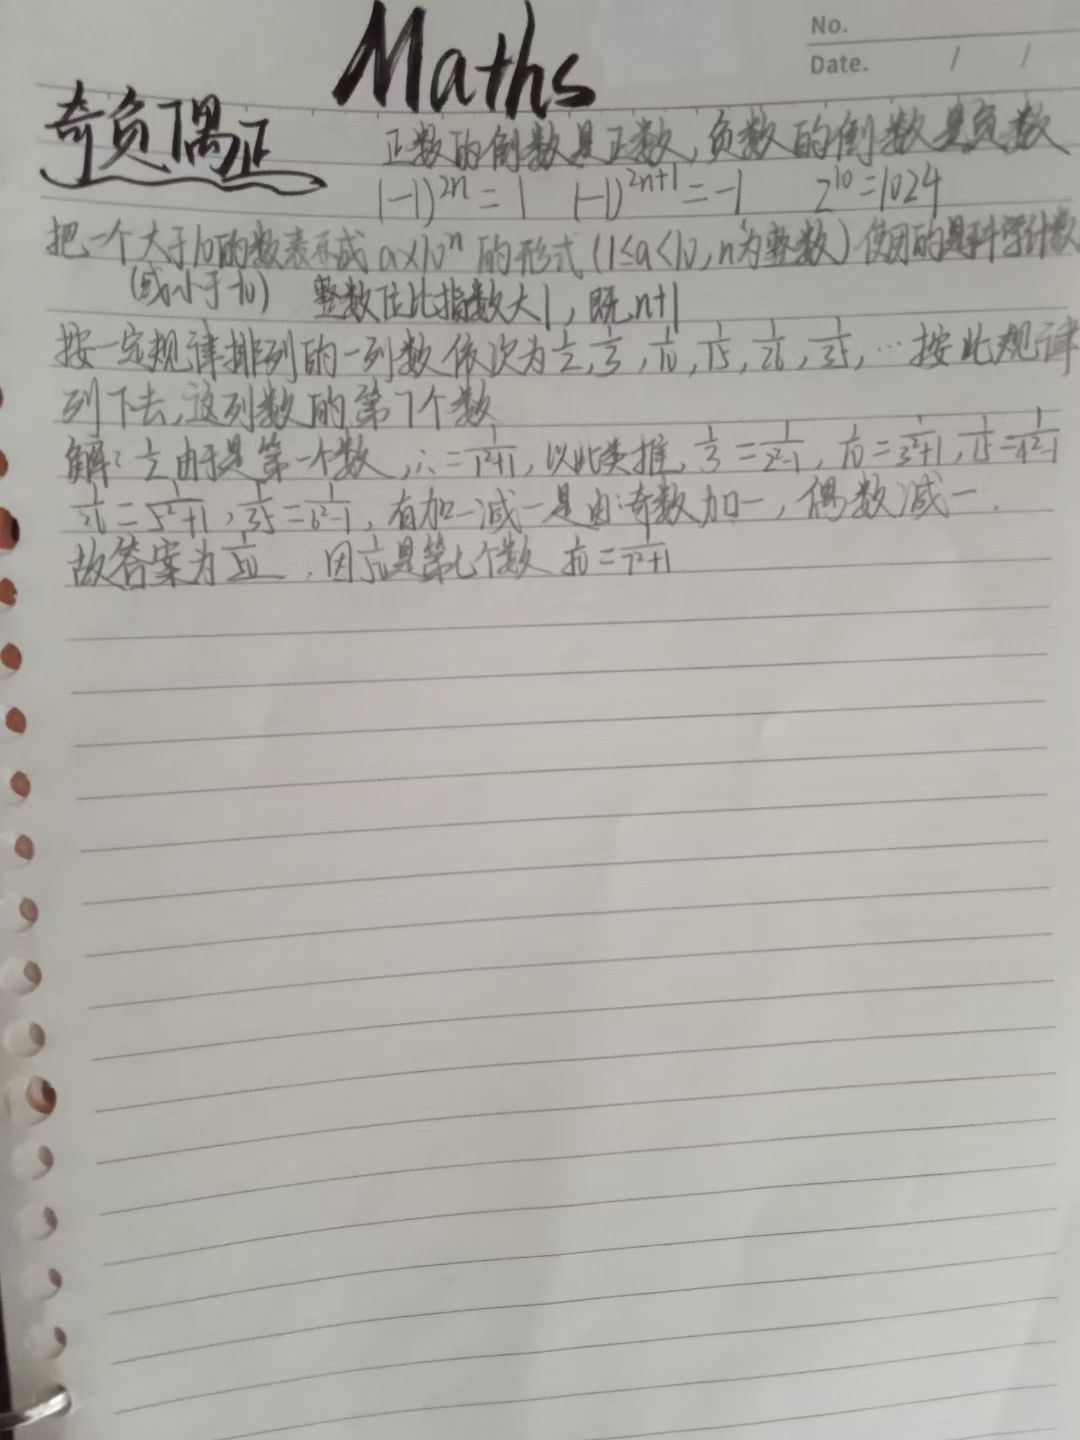 Maths
No.
Date. / /
奇负偶正
正数的倒数是正数,负数的倒数是负数
(-1)^2n = 1 (-1)^2n+1 = -1 2^10 = 1024
把一个大于10的数表示成 a×10^n 的形式 (1≤a<10, n为整数) 使用的是科学计数
(或小于-10) 整数位比指数大1, 既n+1
按一定规律排列的一列数依次为 1/2, 1/3, 1/10, 1/15, 1/26, 1/35, … 按此规律
列下去,这列数的第7个数
解: 1/2由于是第一个数, ∴ = 1/1²+1, 以此类推, 1/3 = 1/2²-1, 1/10 = 1/3²+1, 1/15 = 1/4²-1
1/26 = 1/5²+1, 1/35 = 1/6²-1, 有加一减一是由:奇数加一, 偶数减一.
故答案为 1/50 , 因 1/50 是第七个数 1/50 = 1/7²+1